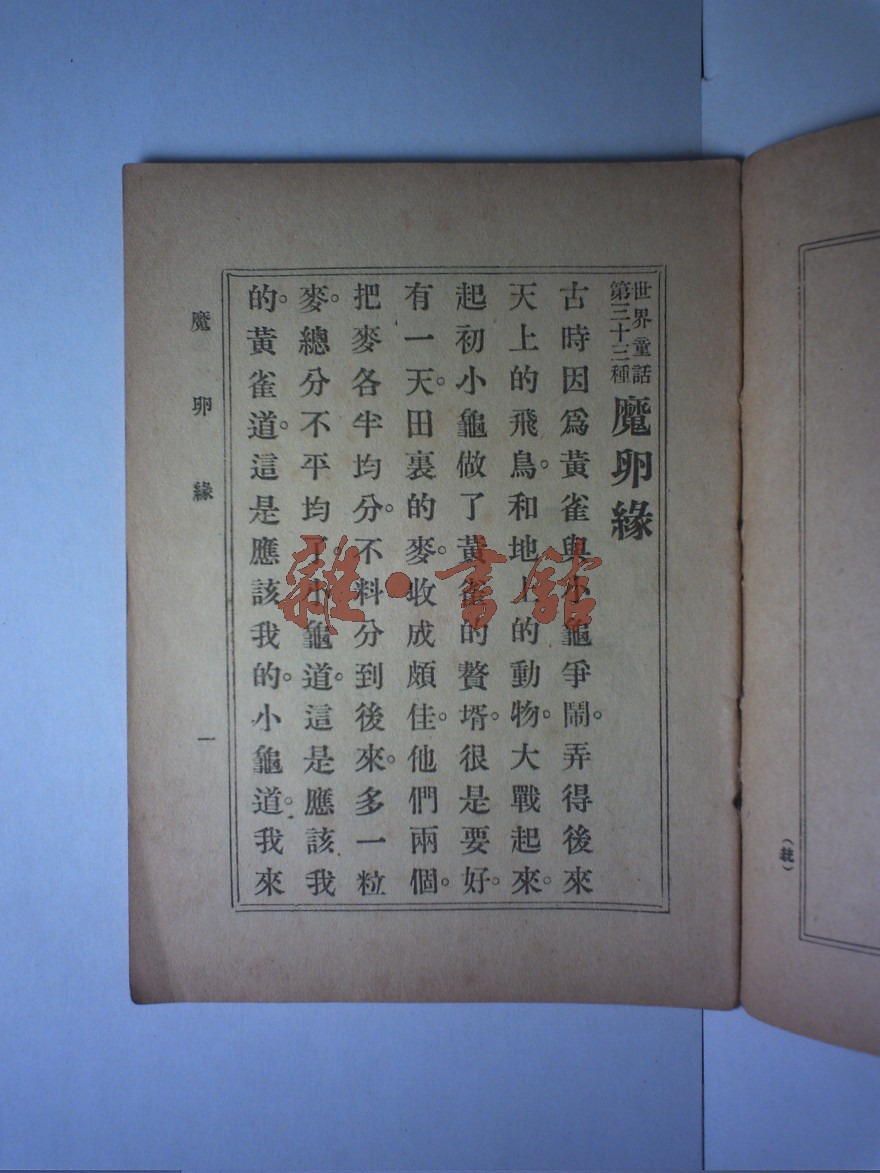 世界童話
第三十三種
魔卵緣
古時因爲黃雀與小龜爭鬧。弄得後來
天上的飛鳥。和地上的動物。大戰起來。
起初小龜做了黃雀的贅壻。很是要好。
有一天。田裏的麥。收成頗佳。他們兩個。
把麥各半均分。不料分到後來。多一粒
麥。總分不平均了。小龜道。這是應該我
的。黃雀道。這是應該我的。小龜道。我來
魔卵緣
一
雜·書館